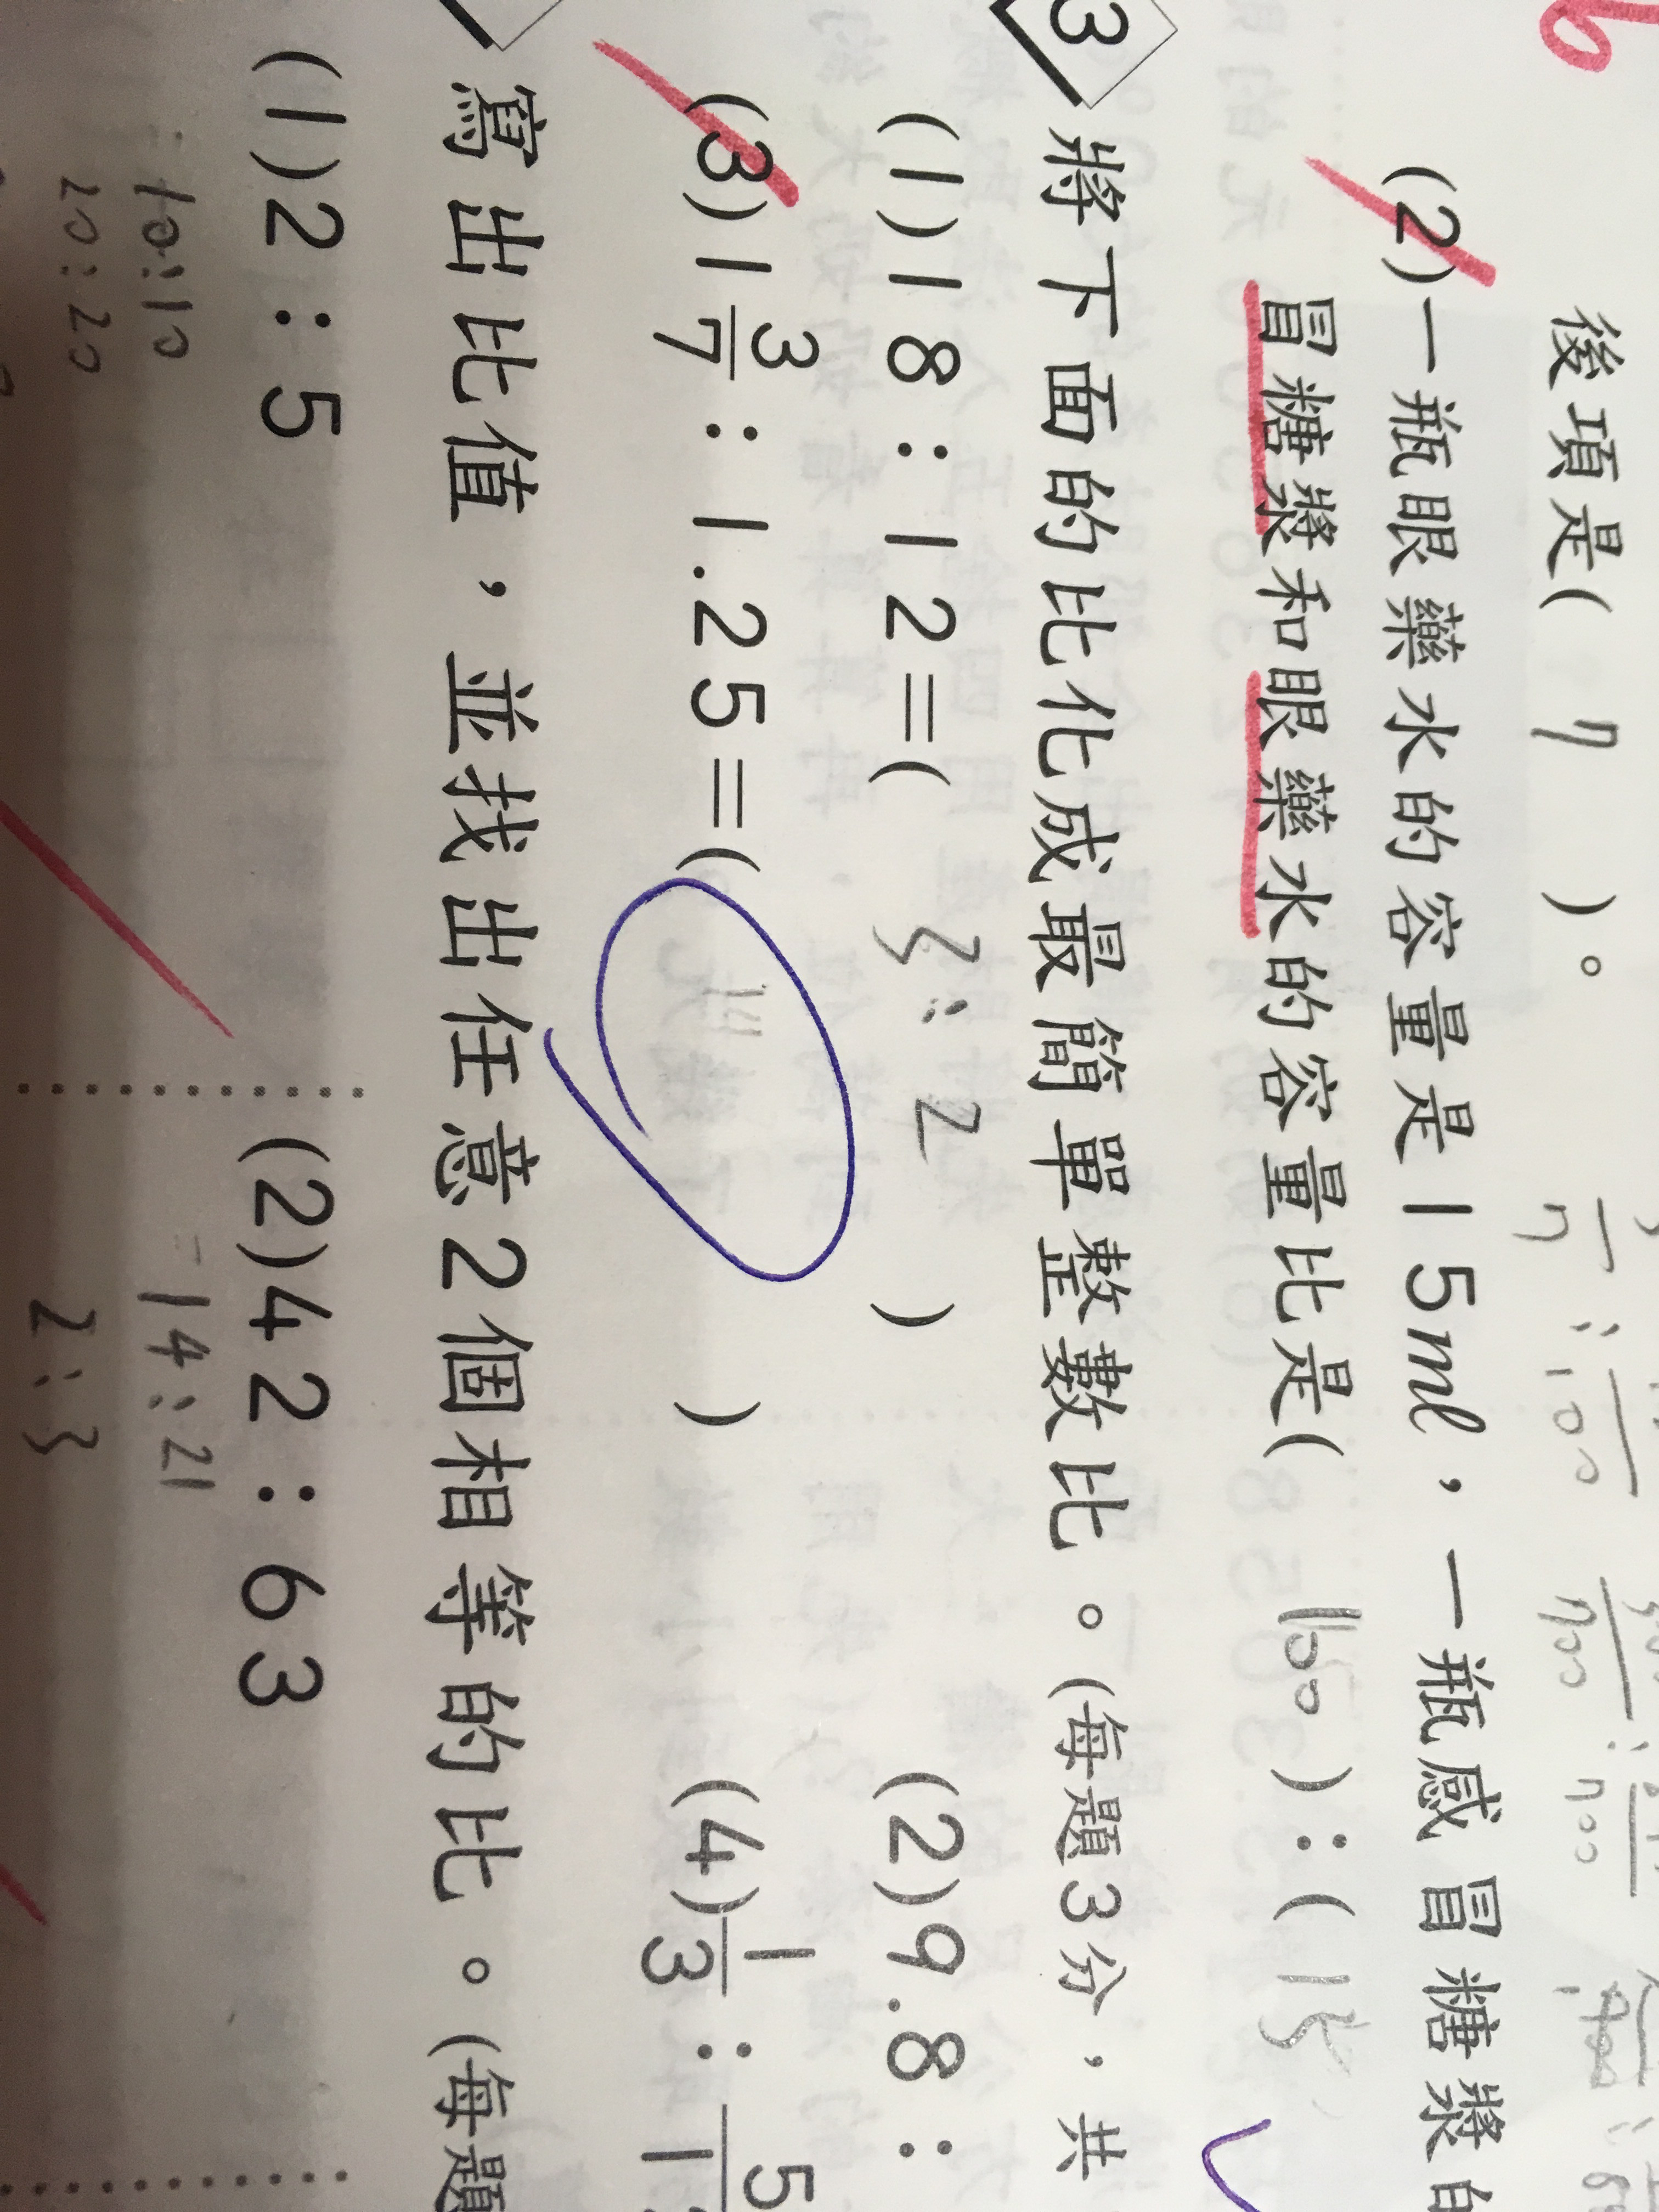 後項是( 7 )。
(2)一瓶眼藥水的容量是15ml，一瓶感冒糖漿的
冒糖漿和眼藥水的容量比是( 160 ):( 15
3 將下面的比化成最簡單整數比。(每題3分，共
(1)18:12=( 3:2 ) (2)9.8:
(3)1 3/7:1.25=( ) (4)1/3:5/1
寫出比值，並找出任意2個相等的比。(每題
(1)2:5 (2)42:63
=14:21
20:20 2:3